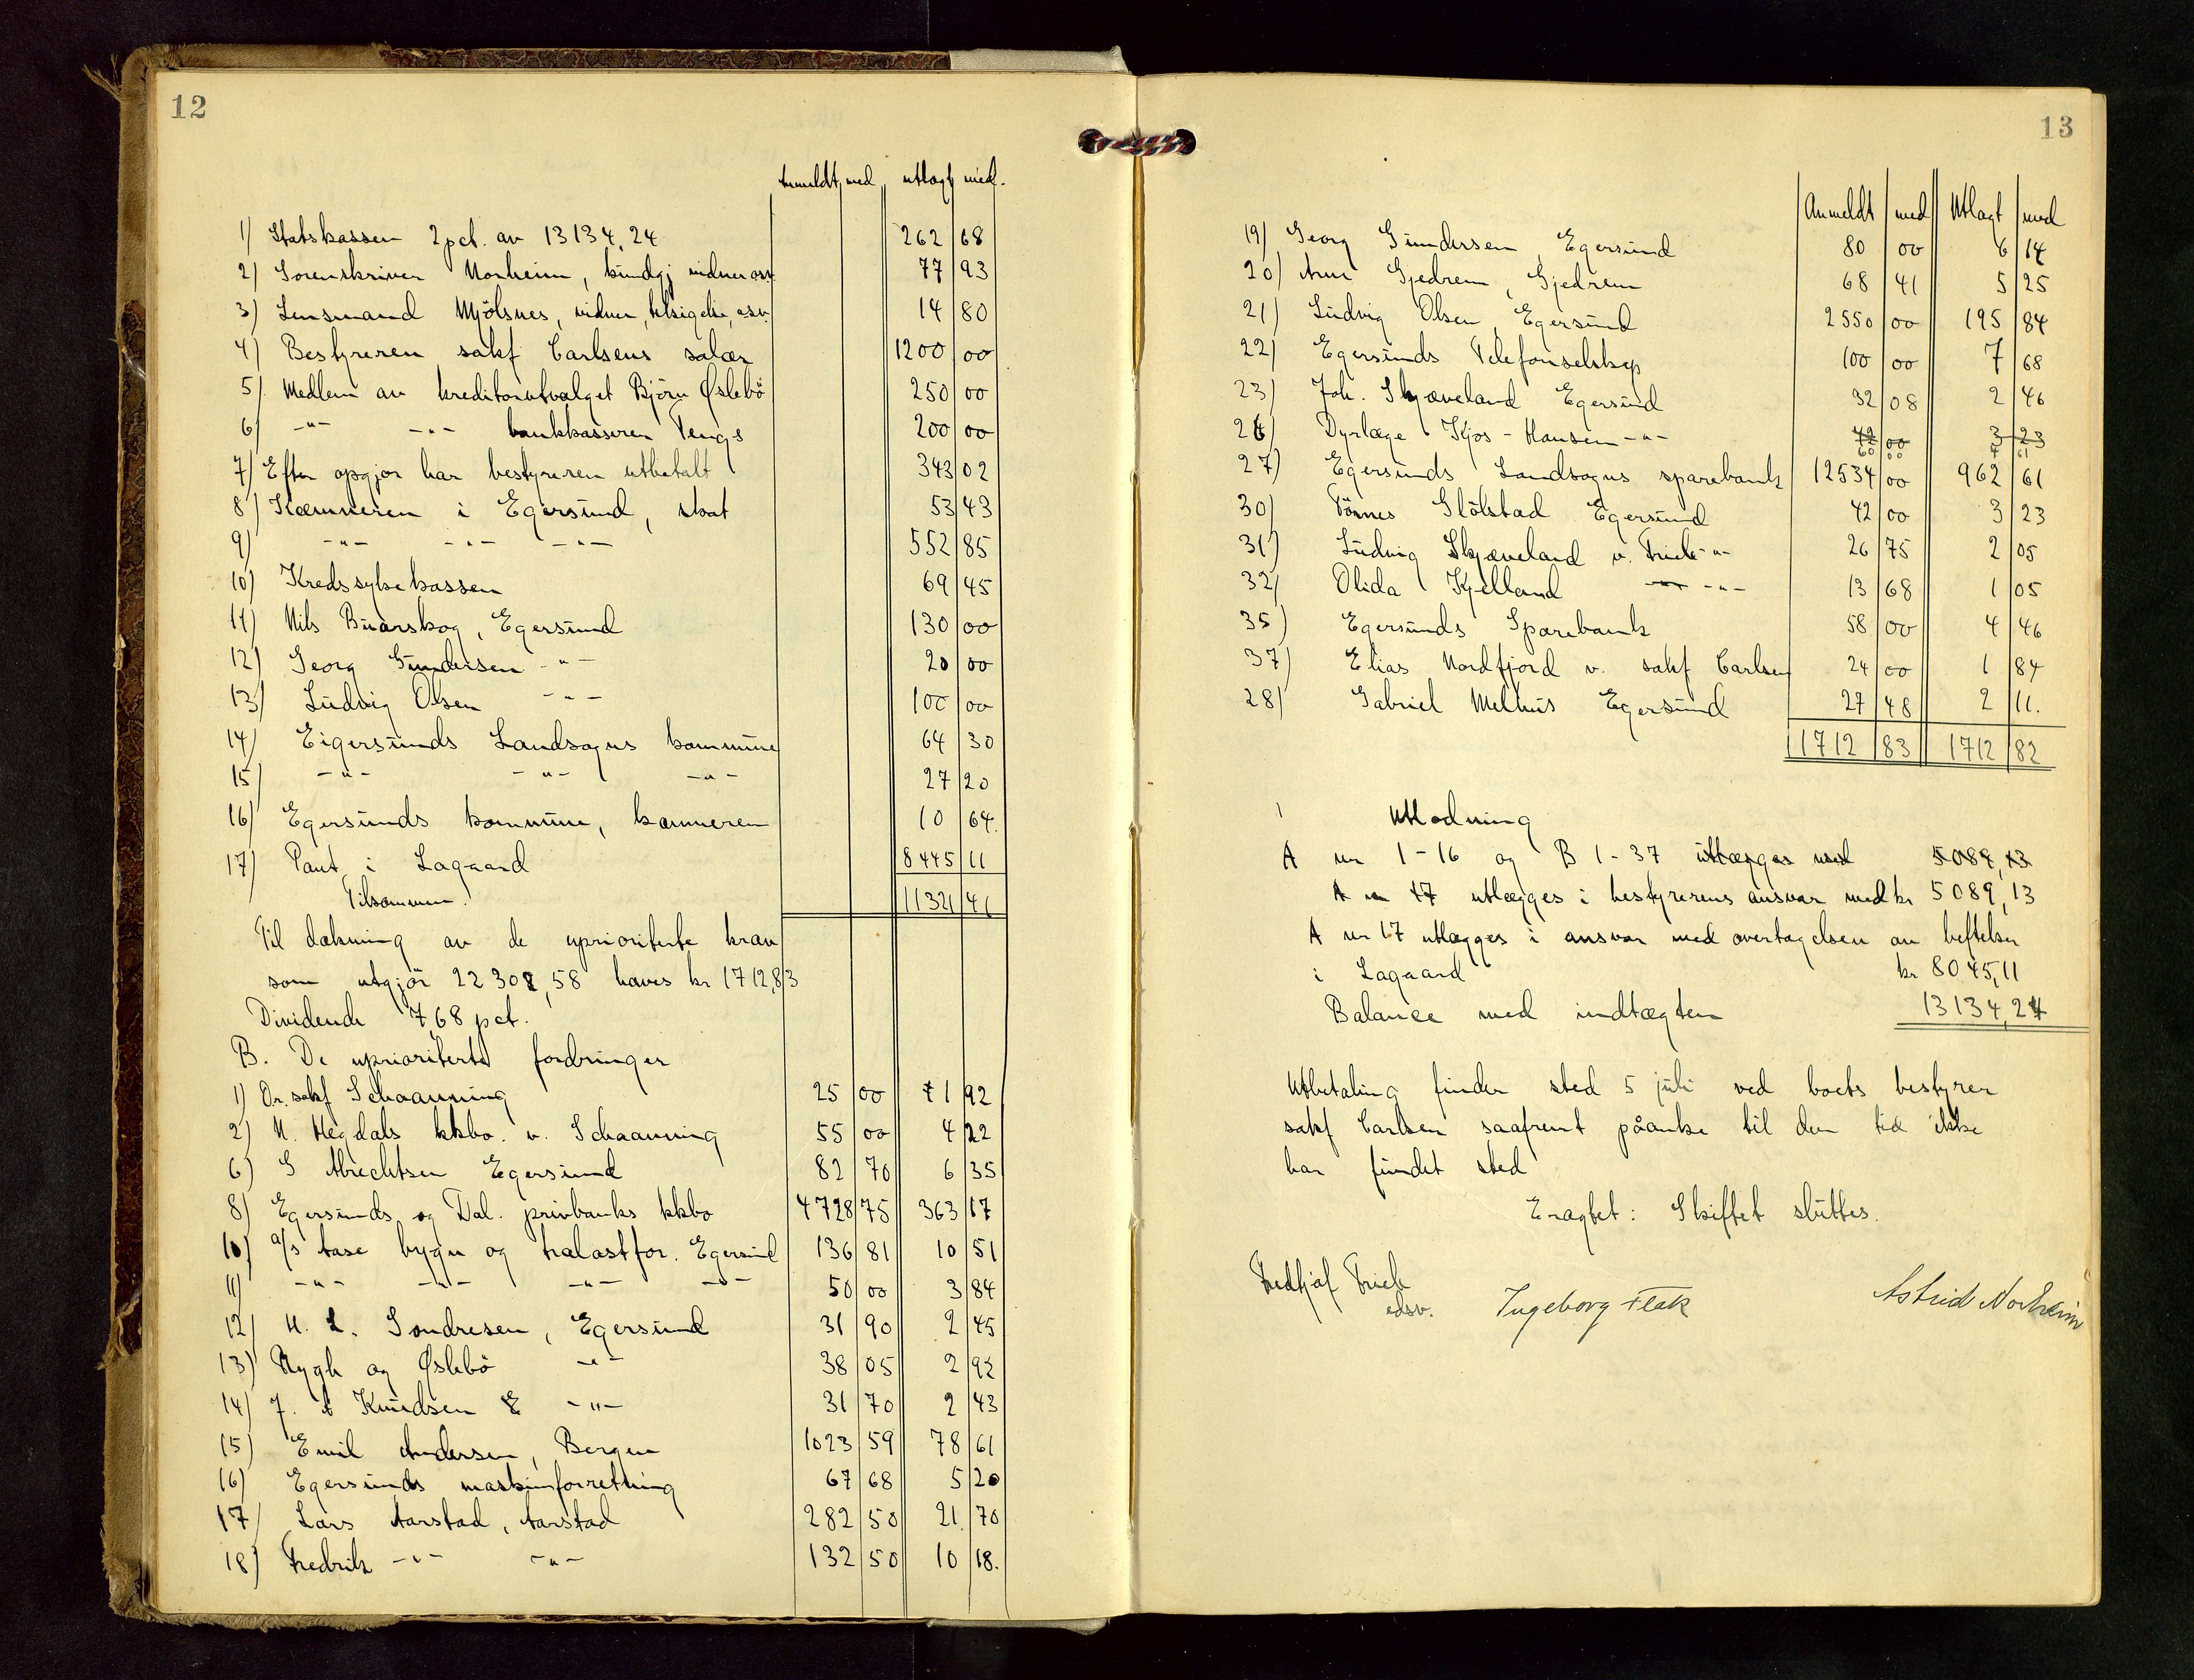 12
Anmeldt med utlagt med.
1) Statskassen 2 pct. av 13134,24 262 68
2) Sorenskriver Norheim, kundgj vidner osv. 77 93
3) Lensmand Mjölsnes, vidner, tilsigelse, osv. 14 80
4) Bestyreren sakf Carlsens salær 1200 00
5) Medlem av kreditorutvalget Björn Øslebö 250 00
6) -"- -"- bankkasserer Tengs 200 00
7) Efter opgjør har bestyreren utbetalt 343 02
8) Kæmneren i Egersund, skat 53 43
9) -"- -"- -"- 552 85
10) Kredssykekassen 69 45
11) Nils Buarskog, Egersund 130 00
12) Georg Gundersen -"- 20 00
13) Ludvig Olsen -"- 100 00
14) Eigersunds Landsogns kommune 64 30
15) -"- -"- -"- 27 20
16) Egersunds kommune, kæmneren 10 64.
17) Pant i Lagaard 8445 11
Tilsammen. 11321 41
Til dækning av de uprioriterte krav
som utgjör 22302,58 haves kr 1712,83
Dividende 7,68 pct.
B. De uprioriterte fordringer
1) Or. sakf Schaanning 25 00 1 92
2) N. Hegdals kkbo. v. Schaanning 55 00 4 22
6) G Abrechtsen Egersund 82 70 6 35
8) Egersunds og Dal. privbanks kkbo 4728 75 363 17
10) a/s Aase bygn og trælastfor. Egersund 136 81 10 51
11) -"- -"- -"- -"- 50 00 3 84
12) N. L. Sondresen, Egersund 31 90 2 45
13) Nygh og Øslebö -"- 38 05 2 92
14) J. A Knudsen E -"- 31 70 2 43
15) Emil Andersen, Bergen 1023 59 78 61
16) Egersunds maskinforretning 67 68 5 20
17) Lars Aarstad, Aarstad 282 50 21 70
18) Fredrik -"- -"- 132 50 10 18.
13
Anmeldt med Utlagt med
19) Georg Gundersen, Egersund 80 00 6 14
20) Arne Gjedrem, Gjedrem 68 41 5 25
21) Ludvig Olsen, Egersund 2550 00 195 84
22) Egersunds Telefonselskap 100 00 7 68
23) Joh. Skjæveland Egersund 32 08 2 46
26) Dyrlæge Kjos-Hansen -"- 42 00 3 23
60 00 4 61
27) Egersunds Landsogns sparebank 12534 00 962 61
30) Tönnes Stölstad Egersund 42 00 3 23
31) Ludvig Skjæveland v. Friele -"- 26 75 2 05
32) Olida Kjelland -"- -"- 13 68 1 05
35) Egersunds Sparebank 58 00 4 46
37) Elias Nordfjord v. sakf Carlsen 24 00 1 84
28) Gabriel Melhus Egersund 27 48 2 11.
11712 83 1712 82
Utlodning
A nr 1-16 og B 1-37 utlægges med 5089,13
A nr 17 utlægges i bestyrerens ansvar med kr 5089,13
A nr 17 utlægges i ansvar med overtagelsen av heftelser
i Lagaard kr 8045,11
Balance med indtægten 13134,24
Utbetaling finder sted 5 juli ved boets bestyrer
sakf Carlsen saafremt påanke til den tid ikke
har fundet sted
Eragtet: Skiftet sluttes.
Fredthjof Friele
edsv. Ingeborg Flak Astrid Norheim